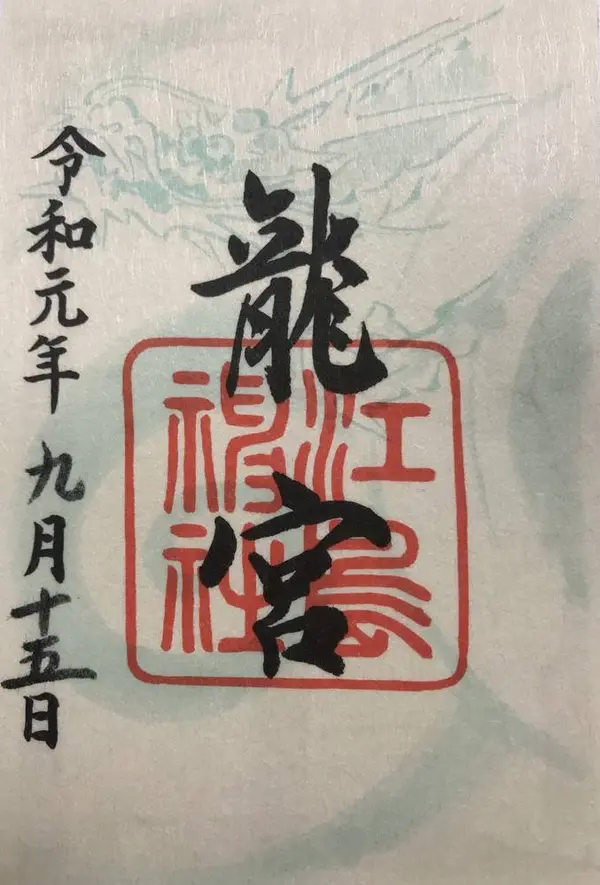 龍宮
江島神社
令和元年九月十五日